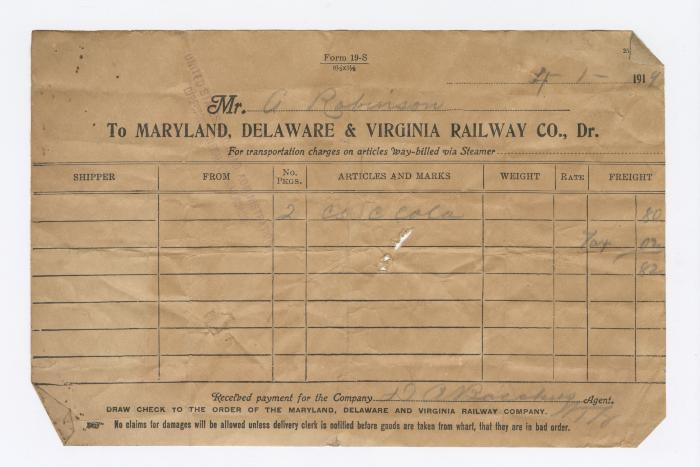 Form 19-S
8½x5½
25
4 1 – 1919
Mr. A Robinson
To MARYLAND, DELAWARE & VIRGINIA RAILWAY CO., Dr.
For transportation charges on articles way-billed via Steamer
SHIPPER FROM No. PKGS. ARTICLES AND MARKS WEIGHT RATE FREIGHT
2 Cola 80
Tax 02
82
Received payment for the Company Agent.
DRAW CHECK TO THE ORDER OF THE MARYLAND, DELAWARE AND VIRGINIA RAILWAY COMPANY.
No claims for damages will be allowed unless delivery clerk is notified before goods are taken from wharf, that they are in bad order.